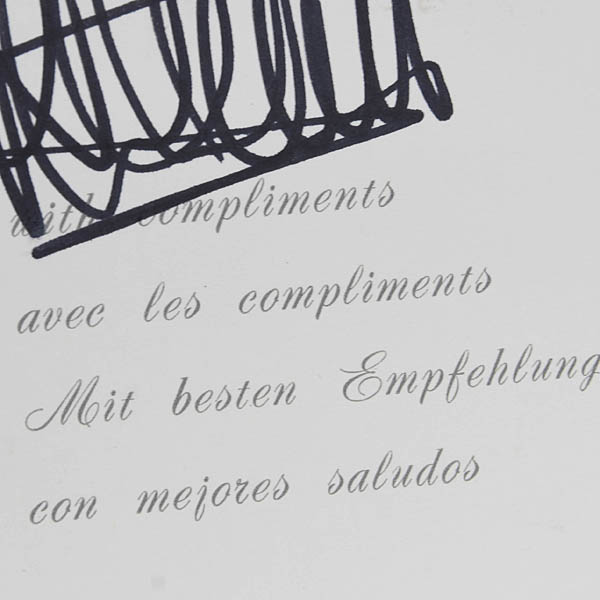 with compliments
avec les compliments
Mit besten Empfehlung
con mejores saludos